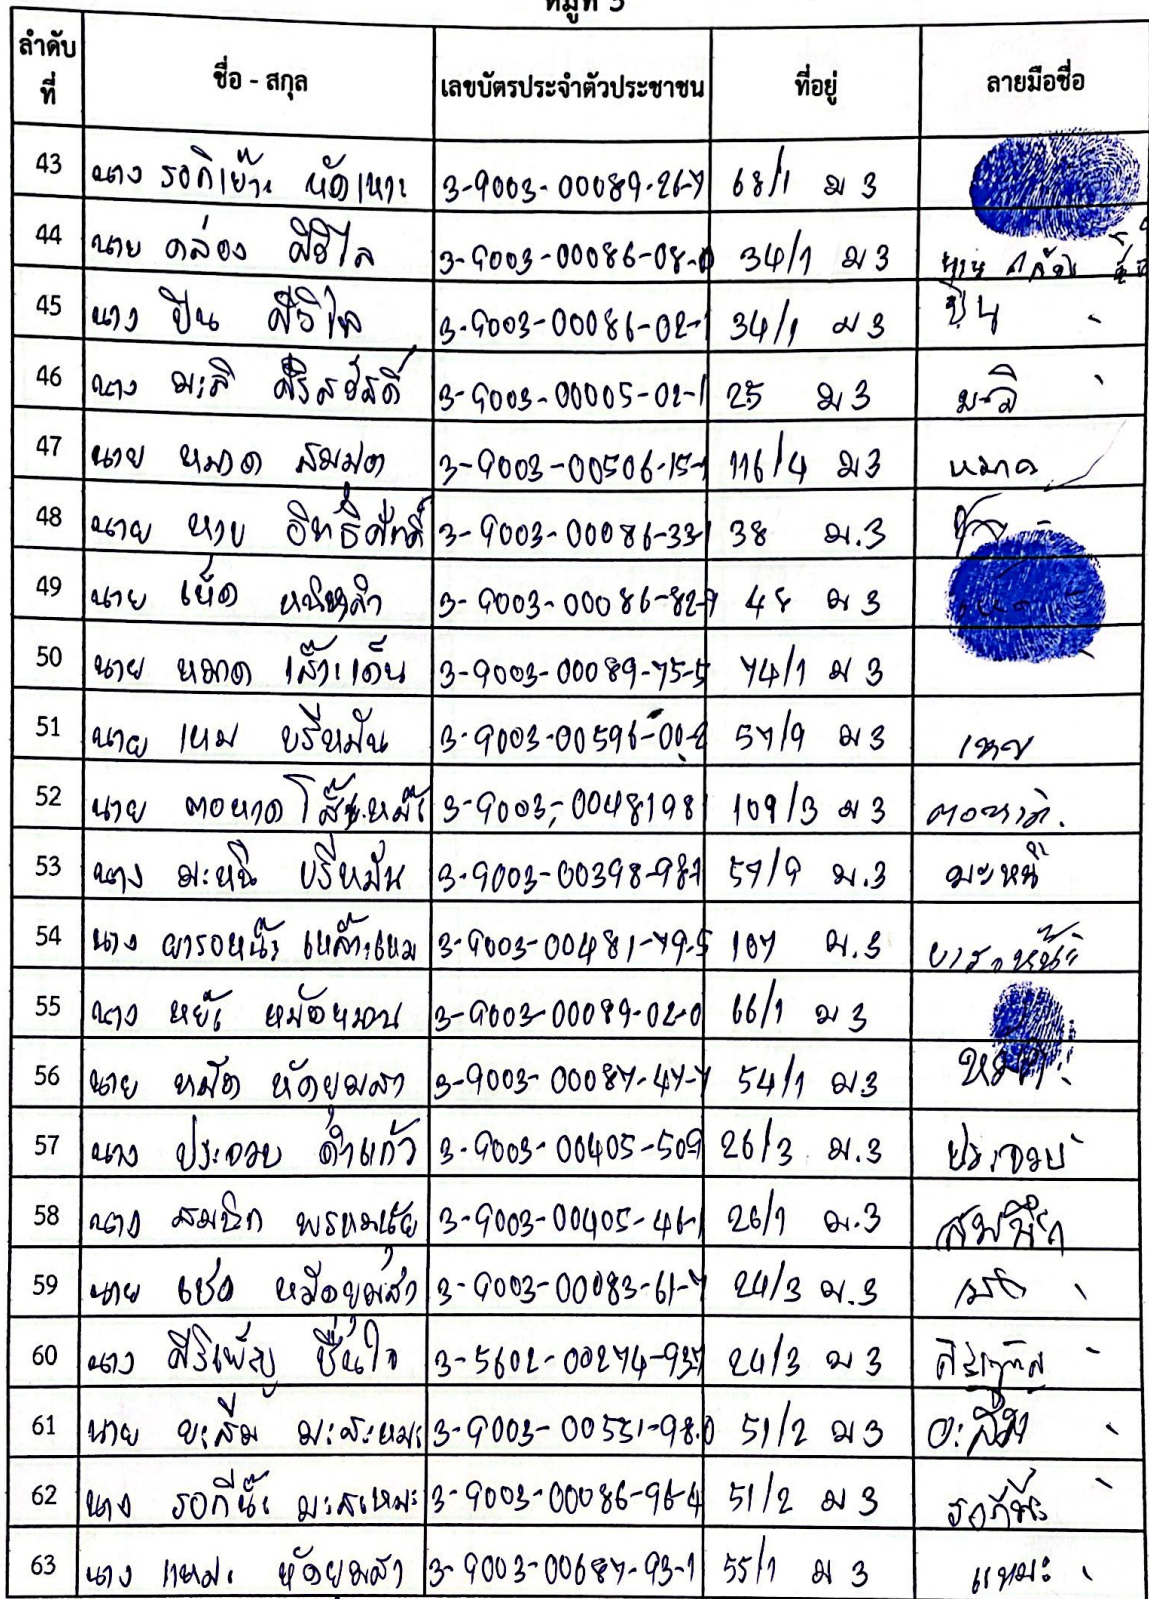 หมู่ที่ 3
ลำดับที่ ชื่อ - สกุล เลขบัตรประจำตัวประชาชน ที่อยู่ ลายมือชื่อ
43 นาง รอกิเย๊าะ หัดเหาะ 3-9003-00089-26-7 68/1 ม 3
44 นาย คล่อง ศิริไล 3-9003-00086-08-0 34/1 ม 3 นาย คล่อง
45 นาง ปิ่น ศิริไล 3-9003-00086-02-1 34/1 ม 3 ปิ่น
46 นาง มะลิ 3-9003-00005-02-1 25 ม 3 มะลิ
47 นาย หมาด สมมาตร 3-9003-00506-15-1 116/4 ม 3 หมาด
48 นาย หาบ อิทธิศักดิ์ 3-9003-00086-33-1 38 ม.3
49 นาย เห็ด 3-9003-00086-82-9 48 ม 3
50 นาย หมาด เส๊าะเด็น 3-9003-00089-75-5 74/1 ม 3
51 นาย เหม บรีหมัน 3-9003-00596-00-2 57/9 ม 3 เหม
52 นาย ตอหาด 3-9003-0048198 109/3 ม 3 ตอหาด.
53 นาง มะหนิ บรีหมัน 3-9003-00398-987 57/9 ม.3 มะหนิ
54 นาง ยารอหน๊ะ เหล๊าะเหม 3-9003-00481-79-5 107 ม.3 ยารอหน๊ะ
55 นาง หย๊ะ หมัดหมาน 3-9003-00089-02-0 66/1 ม 3
56 นาย หมัด หัดยุมสา 3-9003-00087-47-7 54/1 ม.3
57 นาง ประจวบ ดำแก้ว 3-9003-00405-509 26/3 ม.3 ประจวบ
58 นาง สมนึก พรหมนุ้ย 3-9003-00405-46-1 26/1 ม.3 สมนึก
59 นาย เซ็ด หมัดยุมส่า 3-9003-00083-61-7 24/3 ม.3
60 นาง ศิริเพ็ญ ชื่นใจ 3-5602-00274-937 24/3 ม 3 ศิริเพ็ญ
61 นาย ยะสีม มะสะเหมะ 3-9003-00551-98-0 51/2 ม 3 ยะสีม
62 นาง รอกีน๊ะ มะสะเหมะ 3-9003-00086-96-4 51/2 ม 3 รอกีน๊ะ
63 นาง แหมะ หัดยุมสา 3-9003-00687-93-1 55/1 ม 3 แหมะ